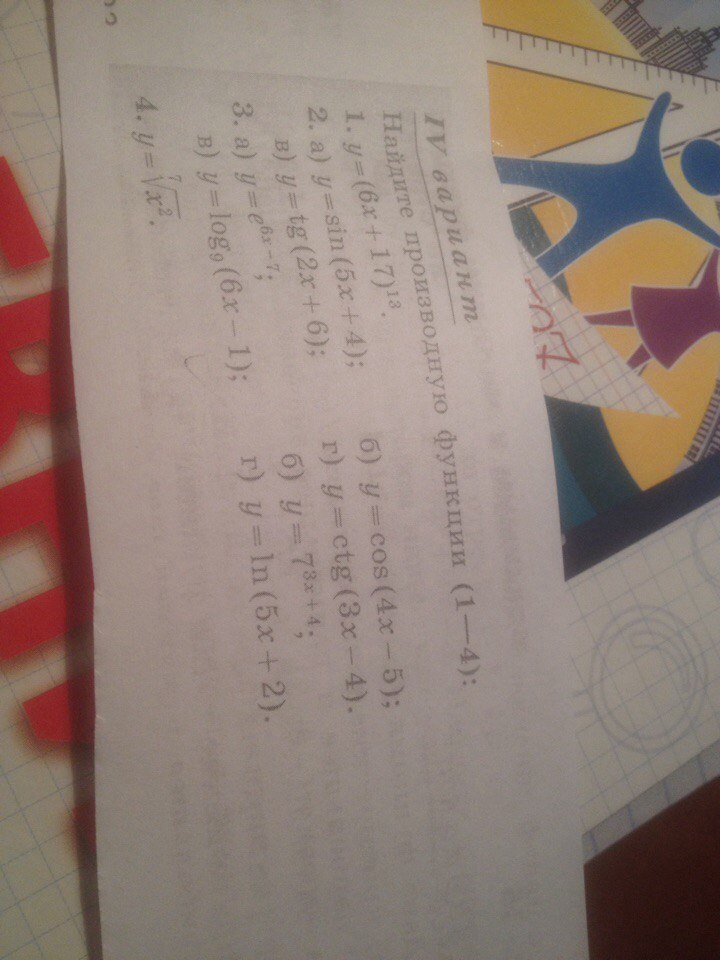 IV вариант
Найдите производную функции (1—4):
1. y=(6x+17)¹³.
2. а) y=sin(5x+4); б) y=cos(4x−5);
в) y=tg(2x+6); г) y=ctg(3x−4).
3. а) y=e⁶ˣ⁻⁷; б) y=7³ˣ⁺⁴;
в) y=log₉(6x−1); г) y=ln(5x+2).
4. y=⁷√x².